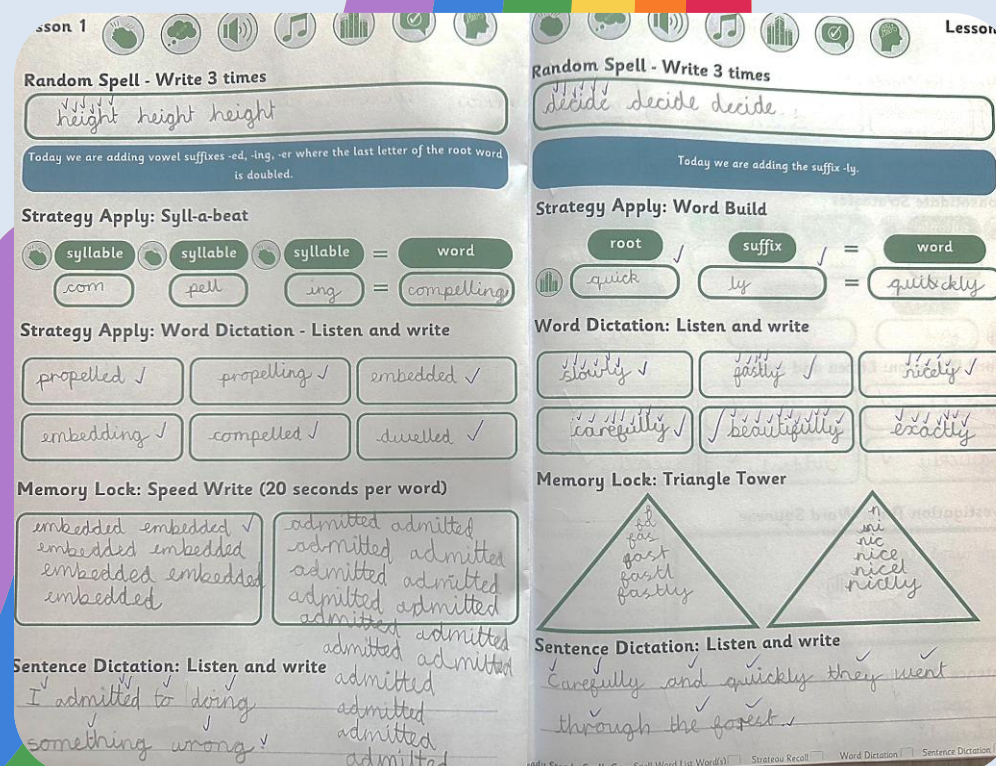 sson 1
Random Spell - Write 3 times
height height height
Today we are adding vowel suffixes -ed, -ing, -er where the last letter of the root word
is doubled.
Strategy Apply: Syll-a-beat
syllable syllable syllable = word
com pell ing = compelling
Strategy Apply: Word Dictation - Listen and write
propelled propelling embedded
embedding compelled dwelled
Memory Lock: Speed Write (20 seconds per word)
embedded embedded
embedded embedded
embedded embedded
embedded
admitted admitted
admitted admitted
admitted admitted
admitted admitted
admitted admitted
admitted admitted
admitted
admitted
admitted
admitted
Sentence Dictation: Listen and write
I admitted to doing
something wrong.
Lesson
Random Spell - Write 3 times
decide decide decide
Today we are adding the suffix -ly.
Strategy Apply: Word Build
root suffix = word
quick ly = quickly
Word Dictation: Listen and write
slowly fastly nicely
carefully beautifully exactly
Memory Lock: Triangle Tower
f
fa
fas
fast
fastl
fastly
n
ni
nic
nice
nicel
nicely
Sentence Dictation: Listen and write
Carefully and quickly they went
through the forest.
Strategy Recall Word Dictation Sentence Dictation